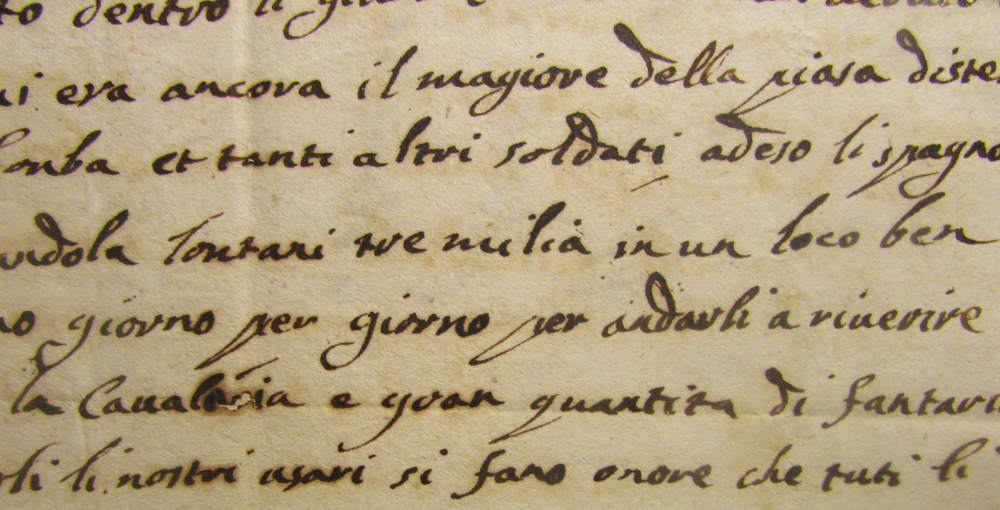 to dentro li
era ancora il magiore della piasa diste
et tanti altri soldati adeso li spagno
andola lontani tre milia in un loco ben
no giorno per giorno per andarli a riverire
la Caualaria e gran quantita di fantari
li nostri usari si fano onore che tuti li